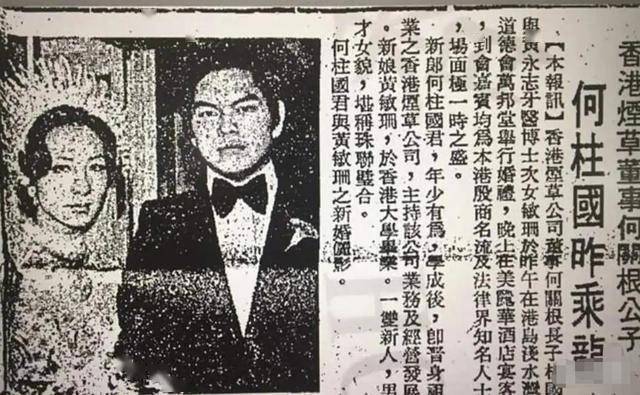 香港煙草董事何關根公子
何柱國昨乘龍
【本報訊】香港煙草公司董事何關根長子柱國
與黃永志牙醫博士次女敏珊於昨午在港島淺水灣
道德會萬邦堂舉行婚禮,晚上在美麗華酒店宴客
,到會嘉賓均爲本港殷商名流及法律界知名人士
,場面極一時之盛。
新郎何柱國君,年少有爲,學成後,卽晉身祖
業之香港煙草公司,主持該公司業務及經營發展
。新娘黃敏珊,於香港大學畢業。一雙新人,男
才女貌,堪稱珠聯璧合。
何柱國君與黃敏珊之新婚儷影。